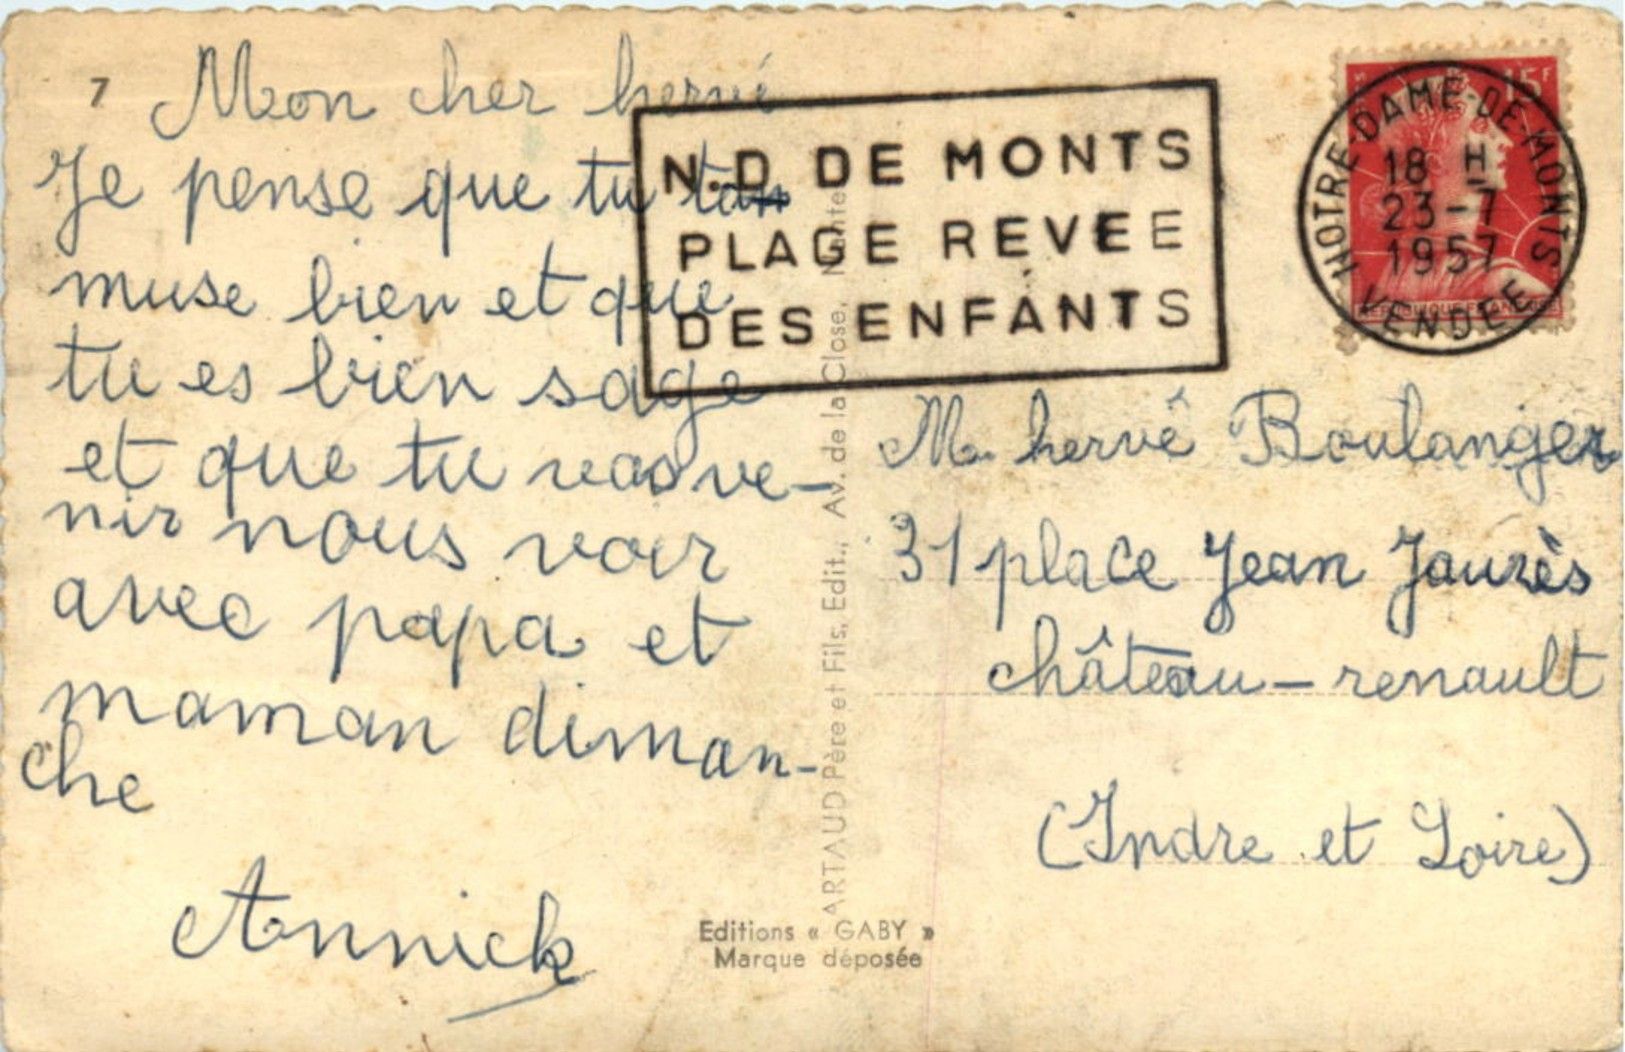 7
Mon cher hervé
Je pense que tu ta
muse bien et que
tu es bien sage
et que tu vas ve-
nir nous voir
avec papa et
maman diman-
che
Annick
N.D DE MONTS
PLAGE REVEE
DES ENFANTS
15F
NOTRE-DAME-DE-MONTS
18 H
23-7
1957
VENDEE
M. hervé Boulanger
31 place Jean Jaurès
château-renault
(Indre et Loire)
ARTAUD Père et Fils, Edit., Av. de la Close, Nantes
Editions « GABY »
Marque déposée